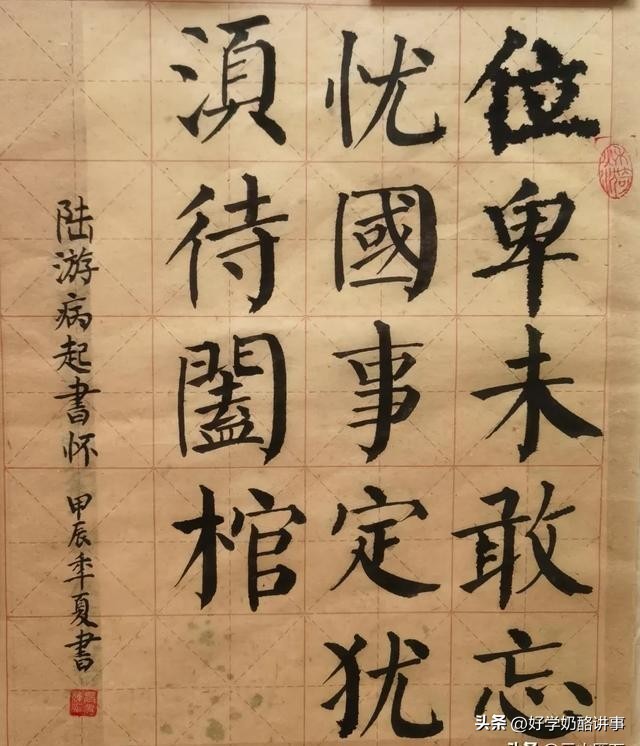 位卑未敢忘
忧國事定犹
須待闔棺
陆游病起書怀 甲辰季夏書
头条 @好学奶酪讲事